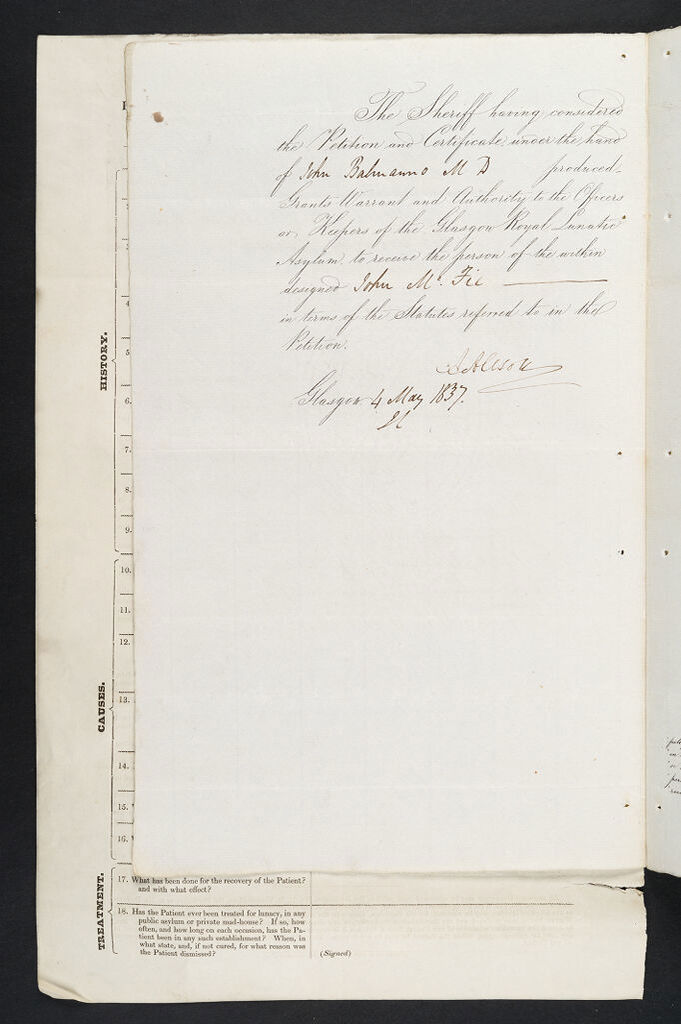 The Sheriff having considered
the Petition and Certificate under the hand
of John Balmanno M D produced
Grants Warrant and Authority to the Officers
or Keepers of the Glasgow Royal Lunatic
Asylum to receive the person of the within
designed John Mc Fie
in terms of the Statutes referred to in the
Petition.
A Alison
Glasgow 4 May 1837.
HISTORY.
4
5
6.
7.
8.
9.
10.
11.
12.
CAUSES.
13.
14.
15.
16.
TREATMENT.
17. What has been done for the recovery of the Patient?
and with what effect?
18. Has the Patient ever been treated for lunacy, in any
public asylum or private mad-house? If so, how
often, and how long on each occasion, has the Pa-
tient been in any such establishment? When, in
what state, and, if not cured, for what reason was
the Patient dismissed?
(Signed)